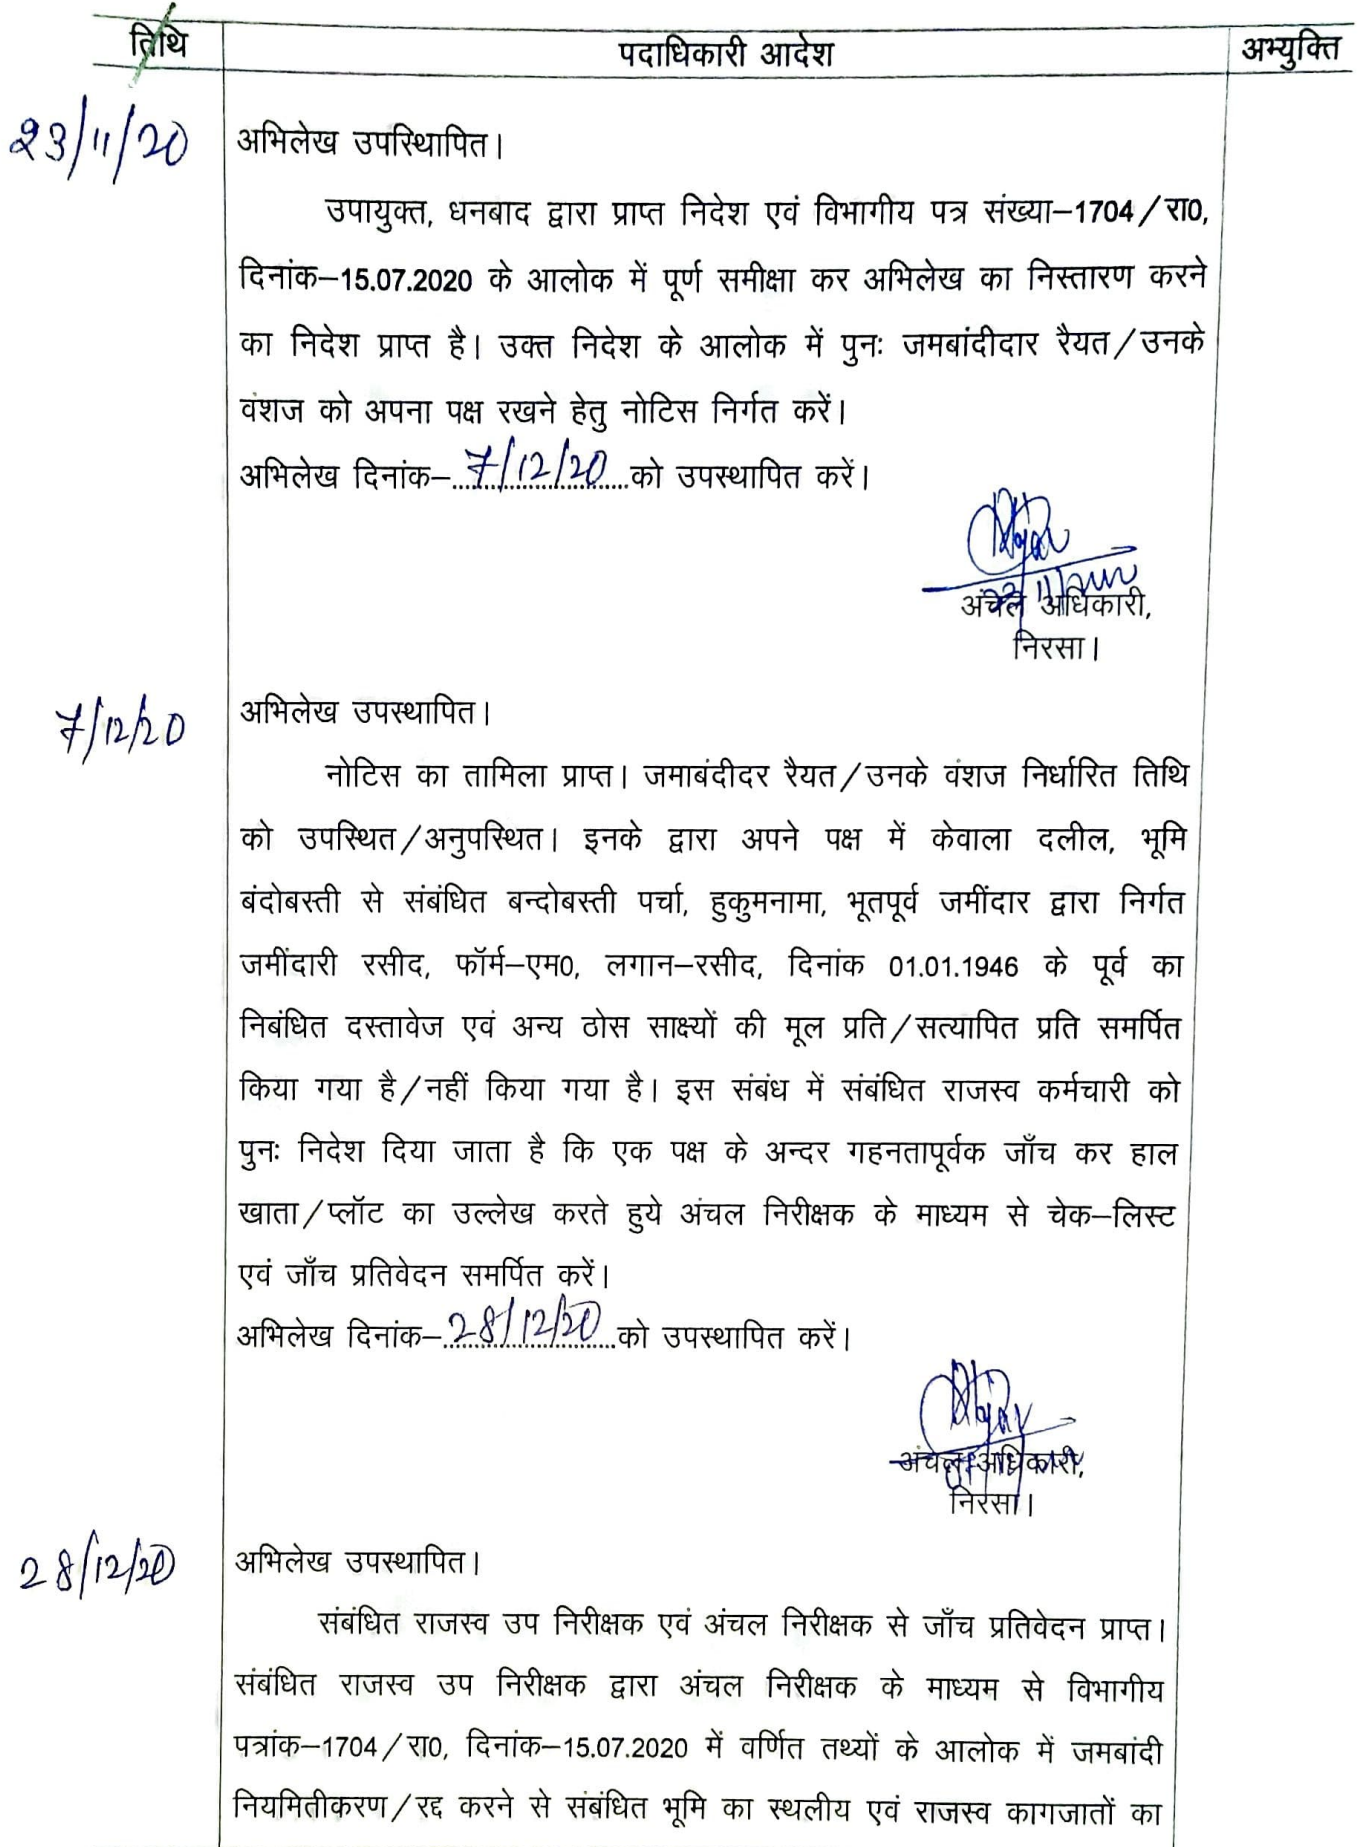 तिथि पदाधिकारी आदेश अभ्युक्ति
23/11/20 अभिलेख उपस्थिापित।
उपायुक्त, धनबाद द्वारा प्राप्त निदेश एवं विभागीय पत्र संख्या–1704/रा0,
दिनांक–15.07.2020 के आलोक में पूर्ण समीक्षा कर अभिलेख का निस्तारण करने
का निदेश प्राप्त है। उक्त निदेश के आलोक में पुनः जमबांदीदार रैयत/उनके
वंशज को अपना पक्ष रखने हेतु नोटिस निर्गत करें।
अभिलेख दिनांक–7/12/20को उपस्थापित करें।
अंचल अधिकारी,
निरसा।
7/12/20 अभिलेख उपस्थापित।
नोटिस का तामिला प्राप्त। जमाबंदीदर रैयत/उनके वंशज निर्धारित तिथि
को उपस्थित/अनुपस्थित। इनके द्वारा अपने पक्ष में केवाला दलील, भूमि
बंदोबस्ती से संबंधित बन्दोबस्ती पर्चा, हुकुमनामा, भूतपूर्व जमींदार द्वारा निर्गत
जमींदारी रसीद, फॉर्म–एम0, लगान–रसीद, दिनांक 01.01.1946 के पूर्व का
निबंधित दस्तावेज एवं अन्य ठोस साक्ष्यों की मूल प्रति/सत्यापित प्रति समर्पित
किया गया है/नहीं किया गया है। इस संबंध में संबंधित राजस्व कर्मचारी को
पुनः निदेश दिया जाता है कि एक पक्ष के अन्दर गहनतापूर्वक जाँच कर हाल
खाता/प्लॉट का उल्लेख करते हुये अंचल निरीक्षक के माध्यम से चेक–लिस्ट
एवं जाँच प्रतिवेदन समर्पित करें।
अभिलेख दिनांक–28/12/20को उपस्थापित करें।
अंचल अधिकारी,
निरसा।
28/12/20 अभिलेख उपस्थापित।
संबंधित राजस्व उप निरीक्षक एवं अंचल निरीक्षक से जाँच प्रतिवेदन प्राप्त।
संबंधित राजस्व उप निरीक्षक द्वारा अंचल निरीक्षक के माध्यम से विभागीय
पत्रांक–1704/रा0, दिनांक–15.07.2020 में वर्णित तथ्यों के आलोक में जमबांदी
नियमितीकरण/रद्द करने से संबंधित भूमि का स्थलीय एवं राजस्व कागजातों का